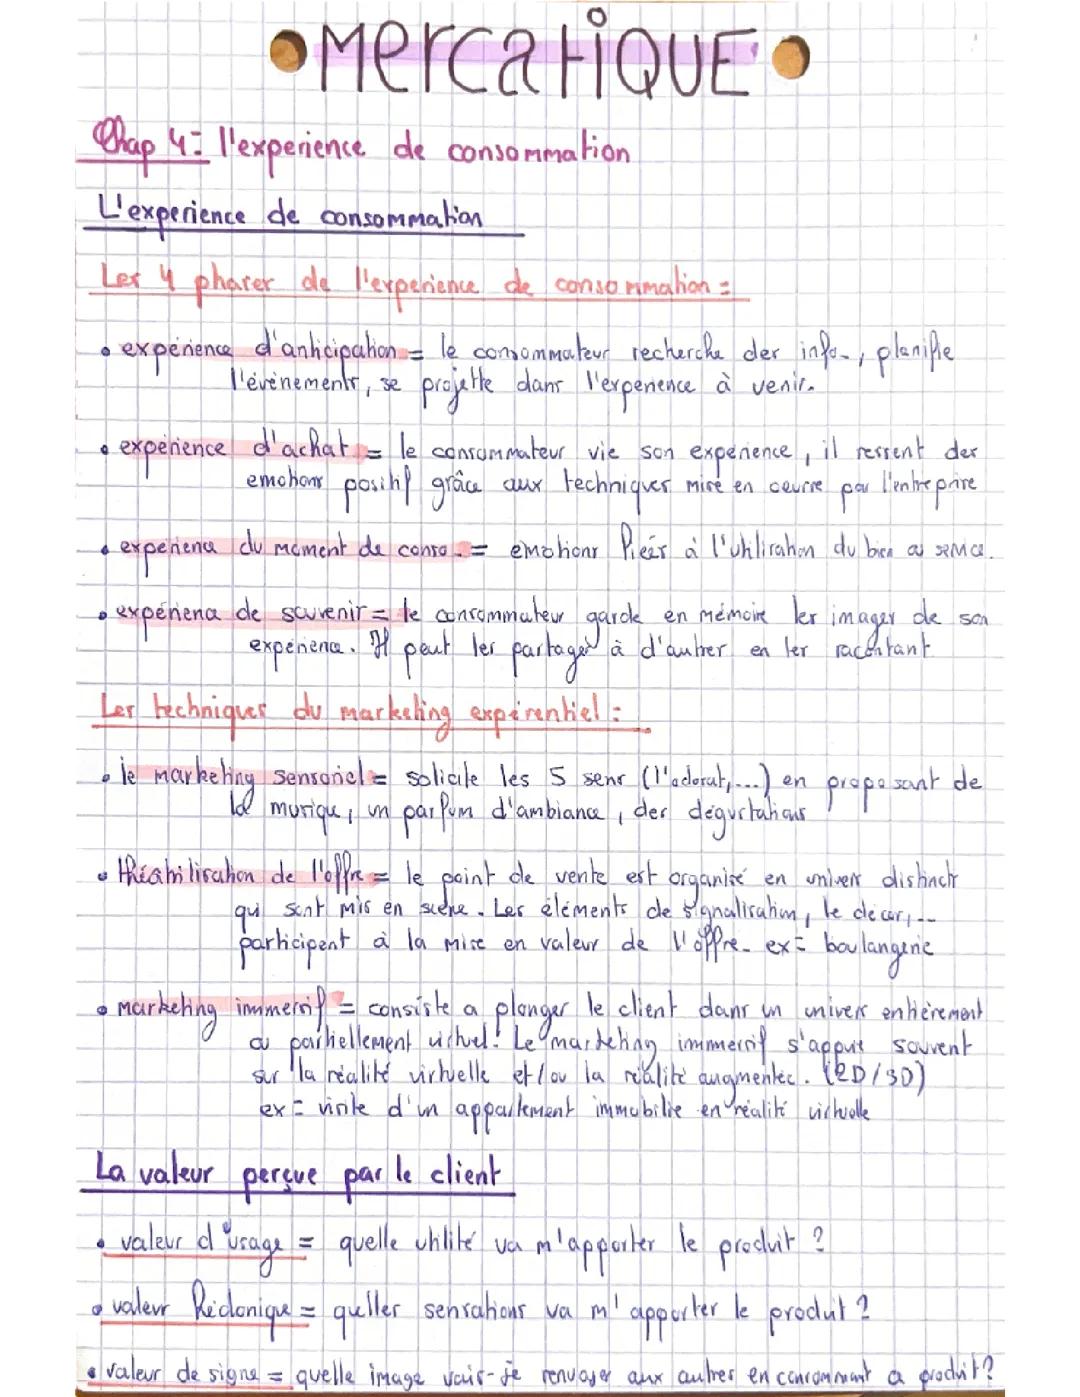 MercatiQUE
Chap 4: l'experience de consommation
L'experience de consommation
Les 4 phases de l'experience de consommation :
• expérience d'anticipation = le consommateur recherche des info., planifie
l'événements, se projette dans l'experience à venir.
• expérience d'achat = le consommateur vie son expérience, il ressent des
emotions positif grâce aux techniques mise en oeuvre par l'entreprise
• experience du moment de conso. = emotions liées à l'utilisation du bien ou service.
• expérience de souvenir = le consommateur garde en mémoire les images de son
experience. Il peut les partager à d'autres en les racontant
Les techniques du marketing expérentiel :
• le marketing sensoriel = solicite les 5 sens (l'odorat,...) en proposant de
la musique, un parfum d'ambiance, des dégustations
• théatrilisation de l'offre = le point de vente est organisé en univers distincts
qui sont mis en scène. Les éléments de signalisation, le decor,...
participent à la mise en valeur de l'offre. ex = boulangerie
• marketing immersif = consiste a plonger le client dans un univers entièrement
ou partiellement virtuel. Le marketing immersif s'appui souvent
sur la réalité virtuelle et/ou la réalité augmentée. (2D/3D)
ex = visite d'un appartement immobilie en réalité virtuelle
La valeur perçue par le client
• valeur d'usage = quelle utilité va m'apporter le produit ?
• valeur hédonique = quelles sensations va m'apporter le produit ?
• valeur de signe = quelle image vais-je renvoyer aux autres en consommant ce produit ?